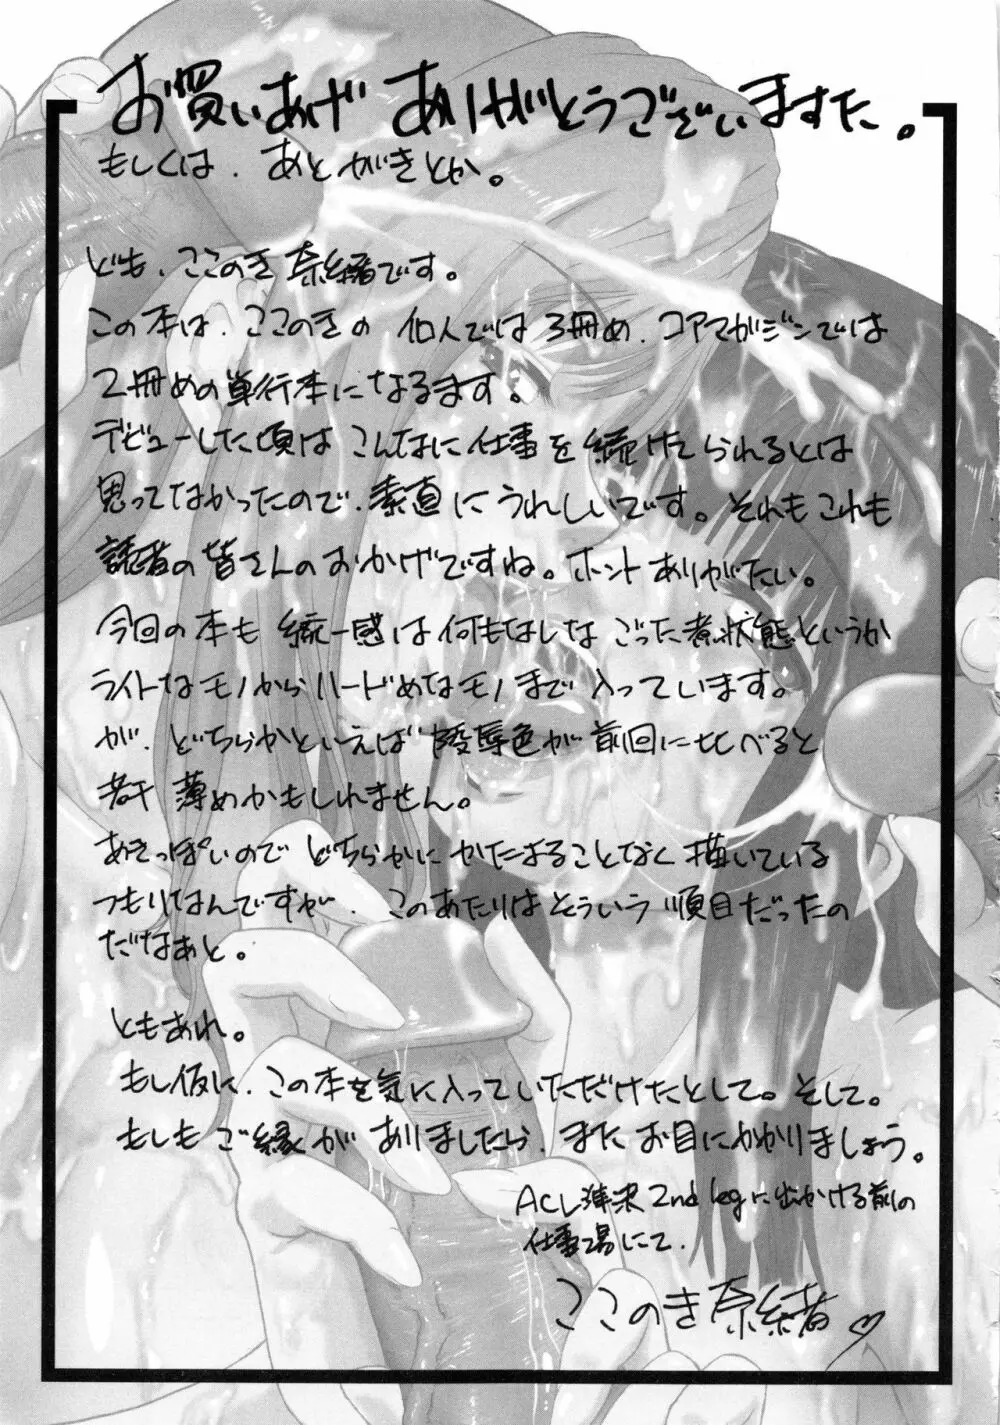 お買いあげ ありがとうございますた。
もしくは、あとがきとか。
ども、ここのき奈緒です。
この本は、ここのきの個人では3冊め、コアマガジンでは
2冊めの単行本になるます。
デビューした頃はこんなに仕事を続けてられるとは
思ってなかったので、素直にうれしいです。それもこれも
読者の皆さんのおかげですね。ホントありがたい。
今回の本も統一感は何もなしなごった煮状態というか
ライトなモノからハードめなモノまで入っています。
が、どちらかといえば陵辱色が前回に比べると
若干薄めかもしれません。
あきっぽいのでどちらかにかたまることなく描いている
つもりなんですが、このあたりはそういう順目だったの
だなぁと。
ともあれ。
もし仮に、この本を気に入っていただけたとして。そして。
もしもご縁がありましたら、またお目にかかりましょう。
ACL準決2nd legに出かける前の
仕事場にて、
ここのき奈緒♡